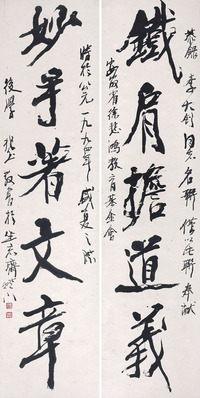 恭錄 李大釗同志名聯 僅以此聯奉獻
鐵肩擔道義
安徽省徐悲鴻教育基金會
妙手著文章
時於公元一九九四年盛夏之際
後學